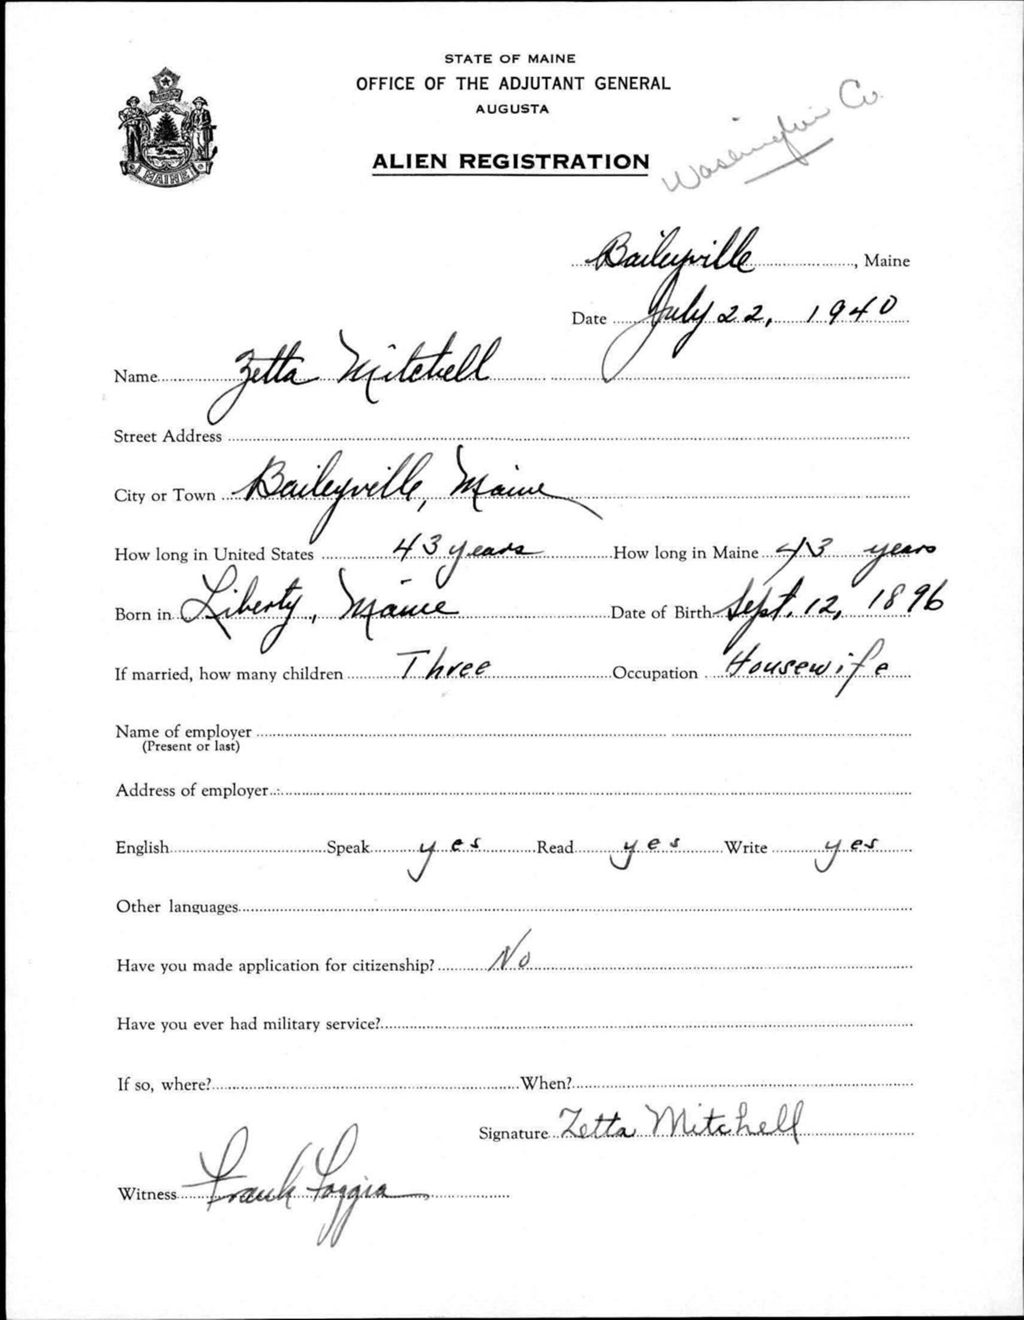 STATE OF MAINE
OFFICE OF THE ADJUTANT GENERAL
AUGUSTA
ALIEN REGISTRATION
Washington Co.
MAINE
Baileyville, Maine
Date July 22, 1940
Name Zetta Mitchell
Street Address
City or Town Baileyville, Maine
How long in United States 43 years How long in Maine 43 years
Born in Liberty, Maine Date of Birth Sept. 12, 1896
If married, how many children Three Occupation Housewife
Name of employer
(Present or last)
Address of employer
English Speak yes Read yes Write yes
Other languages
Have you made application for citizenship? No
Have you ever had military service?
If so, where? When?
Signature Zetta Mitchell
Witness Frank Foggia